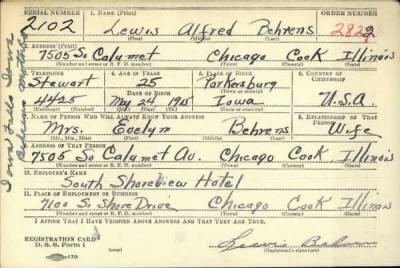 SERIAL NUMBER 1. NAME (Print) ORDER NUMBER
2102 Lewis Alfred Behrens 2822
(First) (Middle) (Last)
2. ADDRESS (Print)
7505 So Calumet Chicago Cook Illinois
(Number and street or R. F. D. number) (Town) (County) (State)
3. TELEPHONE 4. AGE IN YEARS 5. PLACE OF BIRTH 6. COUNTRY OF CITIZENSHIP
Stewart 25 Parkersburg
4425 May 24 1915 Iowa U.S.A.
7. NAME OF PERSON WHO WILL ALWAYS KNOW YOUR ADDRESS 8. RELATIONSHIP OF THAT PERSON
Mrs. Evelyn Behrens Wife
(Mr., Mrs., Miss) (First) (Middle) (Last)
9. ADDRESS OF THAT PERSON
7505 So Calumet Av. Chicago Cook Illinois
(Number and street or R. F. D. number) (Town) (County) (State)
10. EMPLOYER'S NAME
South Shoreview Hotel
11. PLACE OF EMPLOYMENT OR BUSINESS
7100 S. Shore Drive Chicago Cook Illinois
(Number and street or R. F. D. number) (Town) (County) (State)
I AFFIRM THAT I HAVE VERIFIED ABOVE ANSWERS AND THAT THEY ARE TRUE.
REGISTRATION CARD
D. S. S. Form 1 Lewis Behrens
(Registrant's signature)
Iowa Falls Iowa